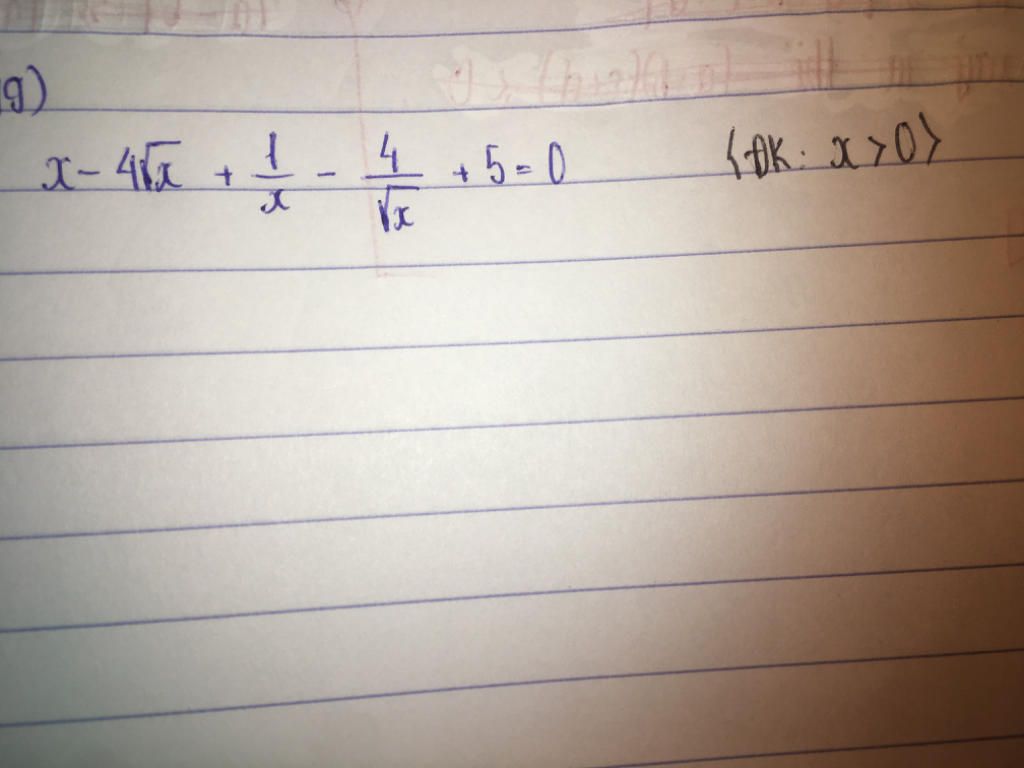 g)
x - 4√x + 1/x - 4/√x + 5 = 0 (ĐK: x > 0)